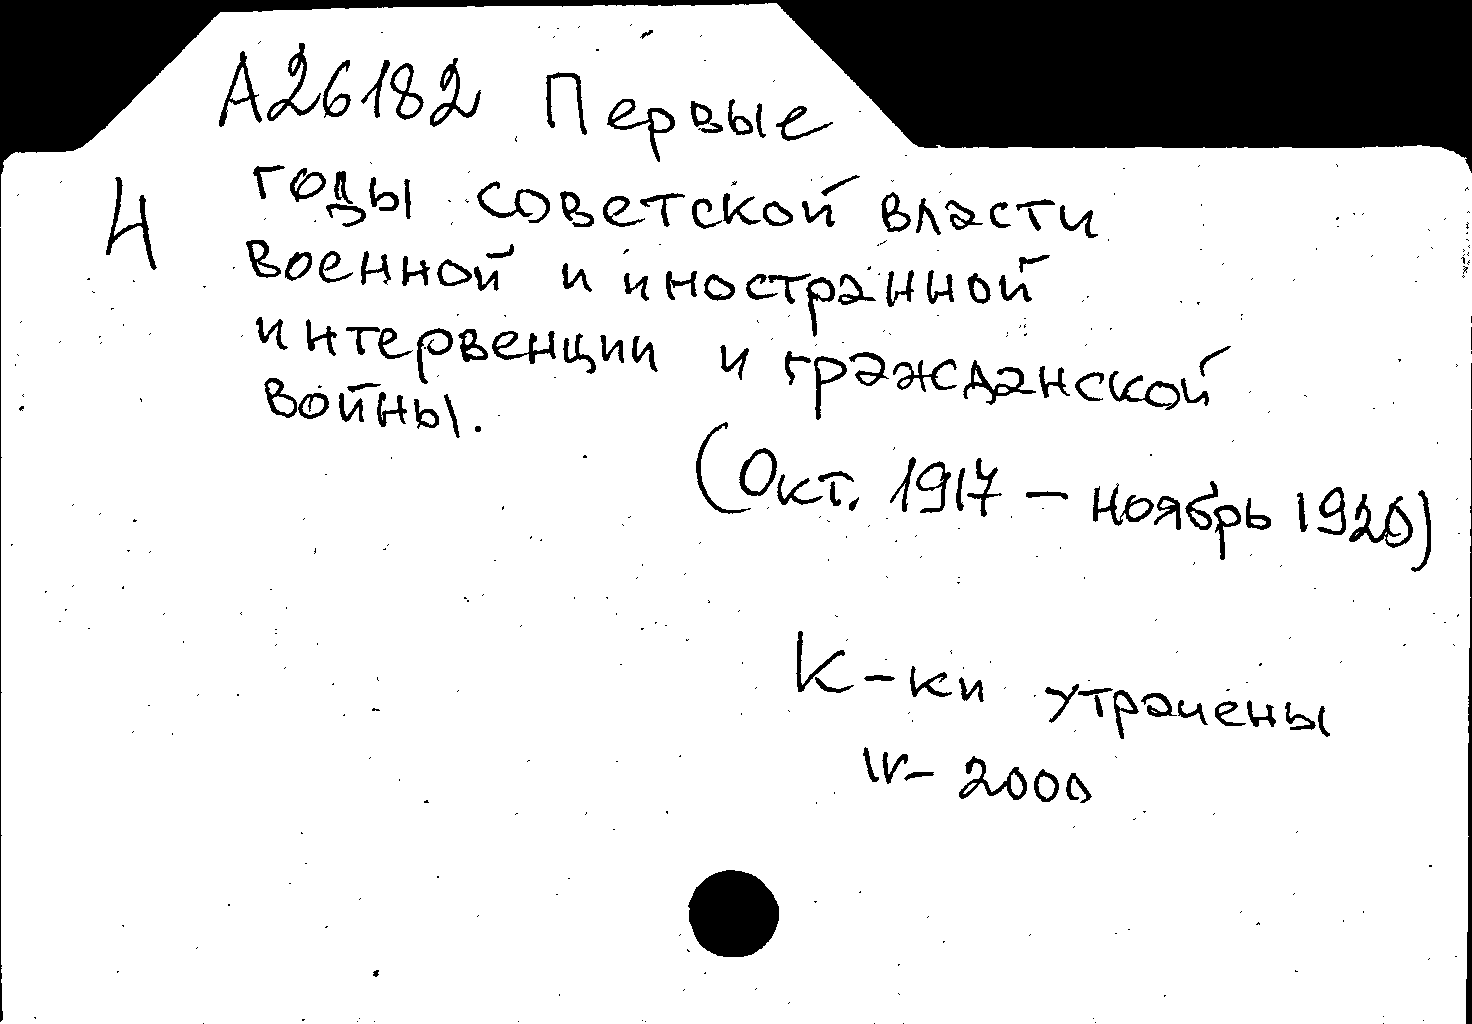 А26182 Первые
4 годы советской власти
военной и иностранной
интервенции и гражданской
войны.
(Окт. 1917 – ноябрь 1920)
К-ки утрачены
IV – 2000